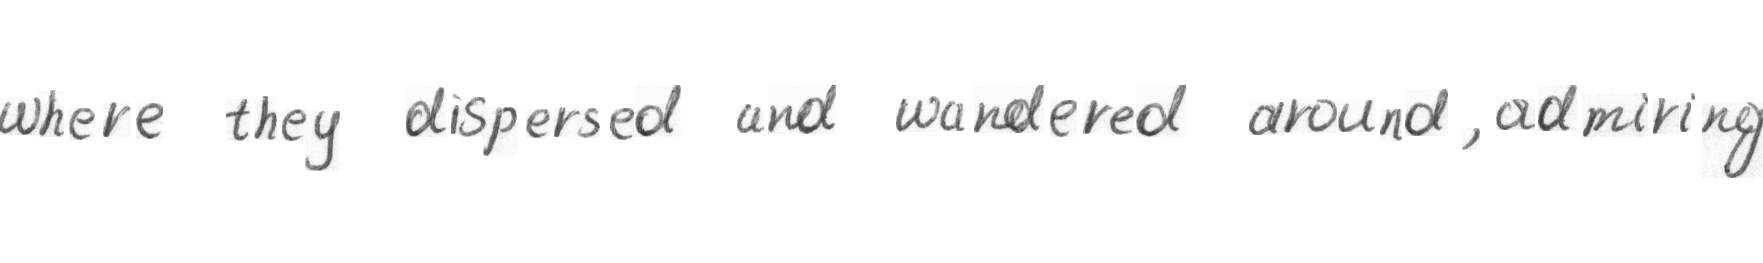 where they dispersed and wandered around, admiring